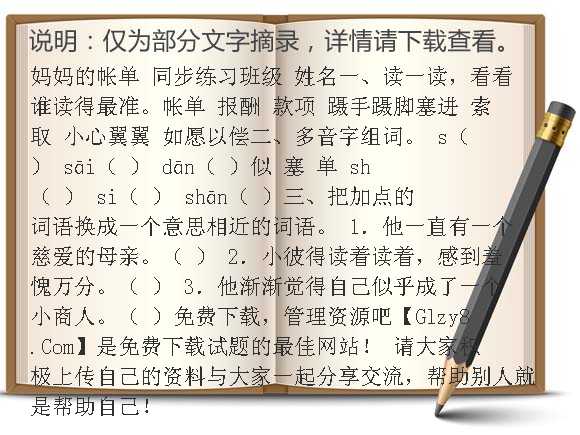 说明：仅为部分文字摘录，详情请下载查看。
妈妈的帐单 同步练习班级 姓名一、读一读，看看
谁读得最准。帐单 报酬 款项 蹑手蹑脚塞进 索
取 小心翼翼 如愿以偿二、多音字组词。 s（
） sāi（ ） dān（ ）似 塞 单 sh
（ ） si（ ） shān（ ）三、把加点的
词语换成一个意思相近的词语。 1．他一直有一个
慈爱的母亲。（ ） 2．小彼得读着读着，感到羞
愧万分。（ ） 3．他渐渐觉得自己似乎成了一个
小商人。（ ）免费下载，管理资源吧【Glzy8
.Com】是免费下载试题的最佳网站！ 请大家积
极上传自己的资料与大家一起分享交流，帮助别人就
是帮助自己！